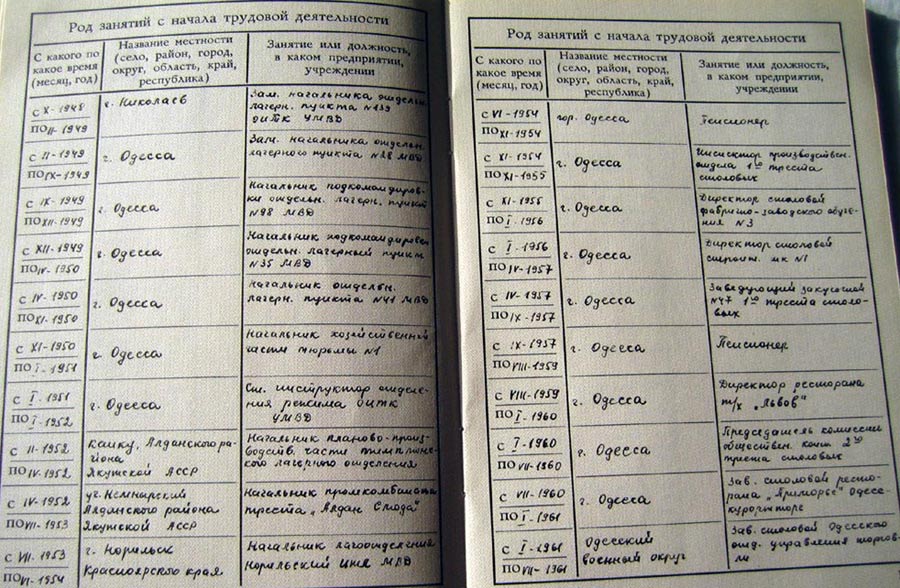 Род занятий с начала трудовой деятельности
С какого по какое время (месяц, год)
Название местности (село, район, город, округ, область, край, республика)
Занятие или должность, в каком предприятии, учреждении
с X-1948
по II-1949
г. Николаев
Зам. начальника отдельн.
лагерн. пункта №139
ОИТК УМВД
с II-1949
по IX-1949
г. Одесса
Зам. начальника отдельн.
лагерного пункта №28 МВД
с IX-1949
по XII-1949
г. Одесса
Начальник подкомандиров-
ки отдельн. лагерн. пункт
№98 МВД
с XII-1949
по IV-1950
г. Одесса
Начальник подкомандировки
отдельн. лагерный пункт
№35 МВД
с IV-1950
по XI-1950
г. Одесса
Начальник отдельн.
лагерн. пункта №41 МВД
с XI-1950
по I-1951
г. Одесса
Начальник хозяйственной
части тюрьмы №1
с I-1951
по I-1952
г. Одесса
Ст. инструктор отделе-
ния режима ОИТК
УМВД
с II-1952
по IV-1952
Алданского ра-
йона
Якутской АССР
Начальник планово-произ-
водств. части
лагерного отделения
с IV-1952
по VII-1953
Алданского района
Якутской АССР
Начальник промкомбината
треста "Алдан Слюда"
с VII-1953
по VI-1954
г. Норильск
Красноярского края
Начальник лаготделения
Норильский МВД
Род занятий с начала трудовой деятельности
С какого по какое время (месяц, год)
Название местности (село, район, город, округ, область, край, республика)
Занятие или должность, в каком предприятии, учреждении
с VI-1954
по XI-1954
гор. Одесса
Пенсионер
с XI-1954
по XI-1955
г. Одесса
Инспектор производствен.
отдела 1го треста
столовых
с XI-1955
по I-1956
г. Одесса
Директор столовой
фабрично-заводского обуче-
ния №3
с I-1956
по IV-1957
г. Одесса
Директор столовой
№1
с IV-1957
по IX-1957
г. Одесса
Заведующий закусочной
№47 1го треста столо-
вых
с IX-1957
по VIII-1959
г. Одесса
Пенсионер
с VIII-1959
по I-1960
г. Одесса
Директор ресторана
т/х "Львов"
с I-1960
по VII-1960
г. Одесса
Председатель комиссии
обществен. конт. 2го
треста столовых
с VII-1960
по I-1961
г. Одесса
Зав. столовой ресто-
рана "Приморье" Одес-
курортторг
с I-1961
по VII-1961
Одесский
военный округ
Зав. столовой Одесского
отд. управления торгов-
ли